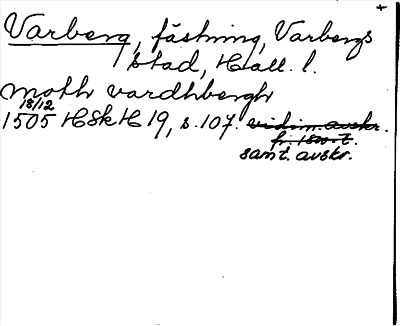 +
Varberg, fästning, Varbergs
stad, Hall. l.
moth vardhbergh
18/12
1505 HSkH 19, s. 107. vidim. avskr.
fr. 1500-t.
samt. avskr.